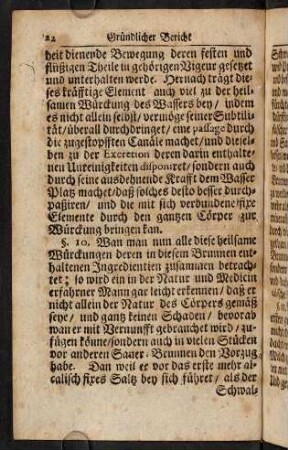 22 Gründlicher Bericht
heit dienende Bewegung deren festen und
flüßigen Theile in gehörigen Vigeur gesetzet
und unterhalten werde. Hernach trägt die-
ses kräfftige Element auch viel zu der heil-
samen Würckung des Wassers bey / indem
es nicht allein selbst / vermöge seiner Subtili-
tät / überall durchdringet / eine passage durch
die zugestopfften Canäle machet / und diesel-
ben zu der Excretion deren darin enthalte-
nen Unreinigkeiten disponiret / sondern auch
durch seine ausdehnende Krafft dem Wasser
Platz machet / daß solches desto besser durch-
paßiren / und die mit sich verbundene fixe
Elemente durch den gantzen Cörper zur
Würckung bringen kan.
§. 10. Wan man nun alle diese heilsame
Würckungen deren in diesem Brunnen ent-
haltenen Ingredientien zusammen betrach-
tet; so wird ein in der Natur und Medicin
erfahrner Mann gar leicht erkennen / daß er
nicht allein der Natur des Cörpers gemäß
seye / und gantz keinen Schaden / bevorab
wan er mit Vernunfft gebrauchet wird / zu-
fügen könne / sondern auch in vielen Stücken
vor anderen Sauer-Brunnen den Vorzug
habe. Dan weil er vor das erste mehr al-
calisch fixes Saltz bey sich führet / als der
Schwal-